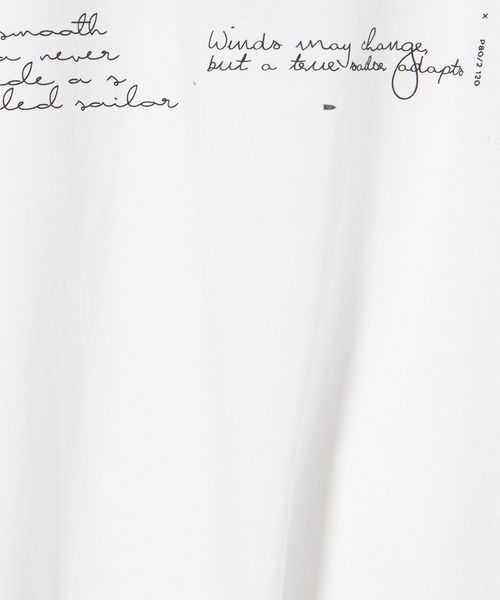 smooth
a never
de a s
led sailor
Winds may change,
but a true sailor adapts
x
P80/2 120